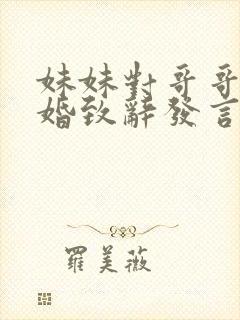 妹妹對哥哥
婚致辭發言
羅美薇